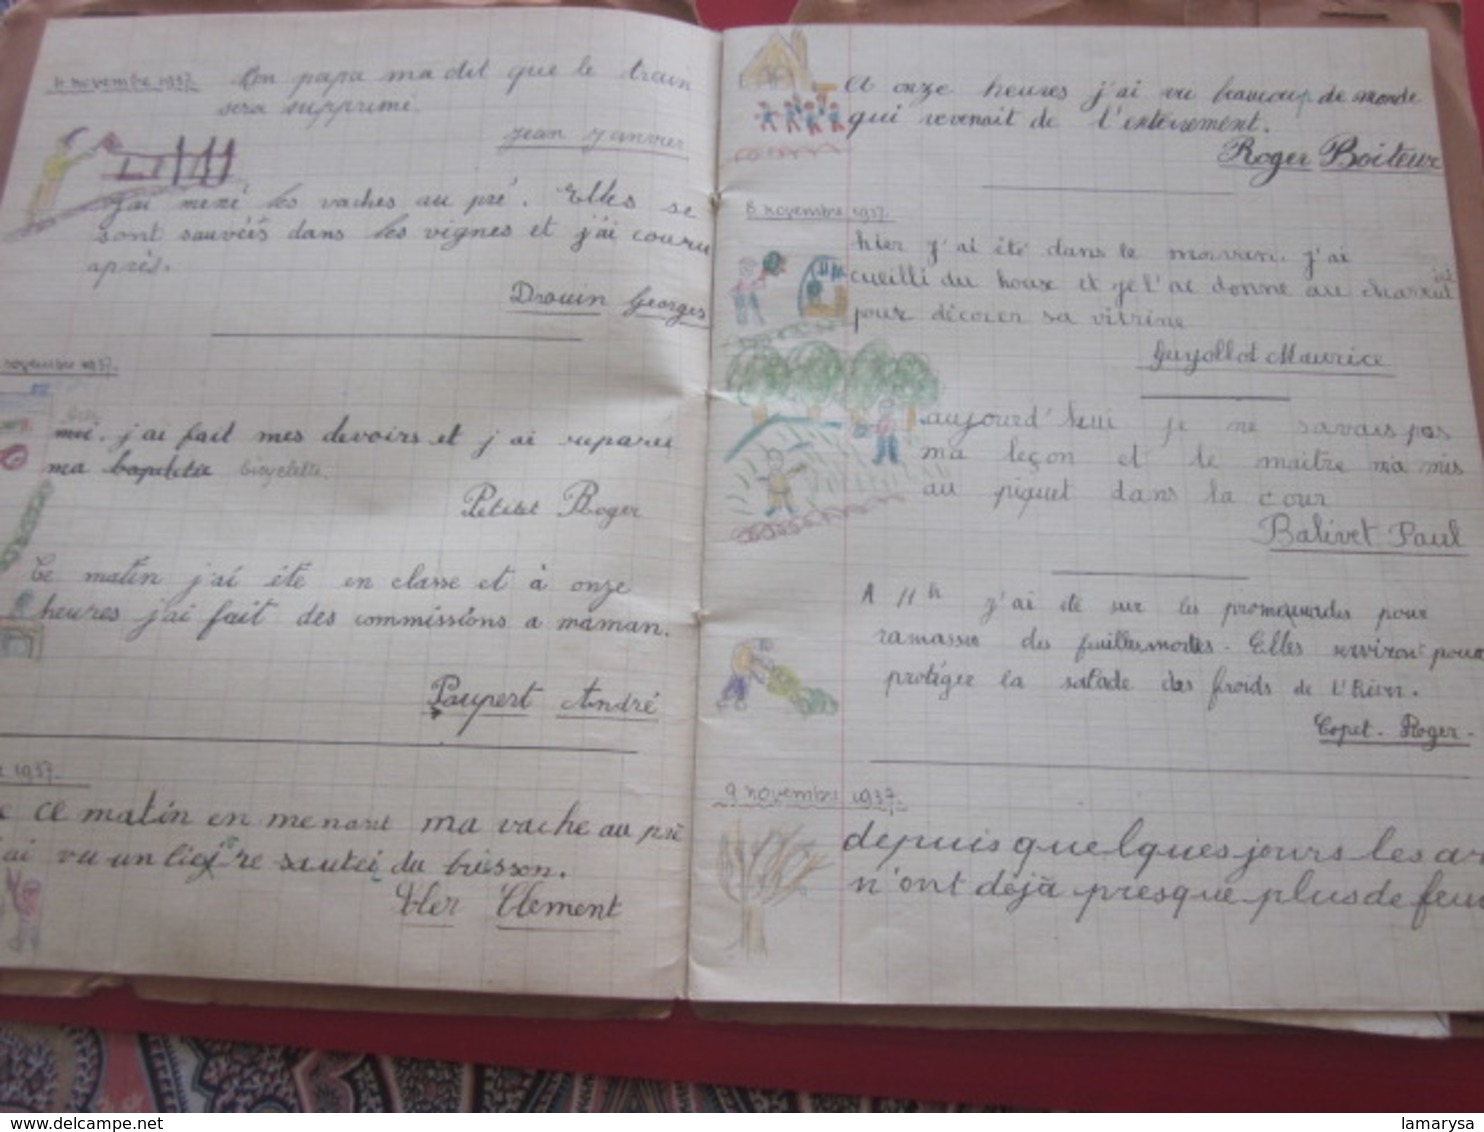 4 novembre 1937. Mon papa ma dit que le train
sera supprimé.
Jean Janvier
J'ai mené les vaches au pré. Elles se
sont sauvéés dans les vignes et j'ai couru
après.
Drouin Georges
novembre 1937.
moi. j'ai fait mes devoirs et j'ai réparer
ma bicyclette.
Petitet Roger
Ce matin j'ai été en classe et à onze
heures j'ai fait des commissions a maman.
Paupert André
1937.
ce matin en menant ma vache au pré
ai vu un lièvre sauter du buisson.
Clement
A onze heures j'ai vu beaucoup de monde
qui revenait de l'enterrement.
Roger Boiteux
8 novembre 1937.
hier j'ai été dans le morvan. j'ai
cueilli du houx et je l'ai donné au
pour décorer sa vitrine
Guyollot Maurice
aujourd'hui je ne savais pas
ma leçon et le maitre m'a mis
au piquet dans la cour
Balivet Paul
A 11h j'ai été sur les promenades pour
ramasser des feuilles mortes. Elles serviront pour
protéger la salade des froids de l'hiver.
Copet. Roger.
9 novembre 1937.
depuis quelques jours les ar
n'ont déjà presque plus de feui
delcampe.net
lamarysa